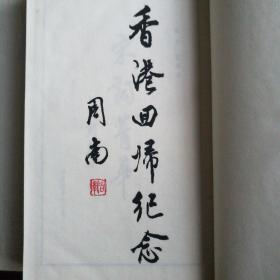 香港回歸纪念
周南